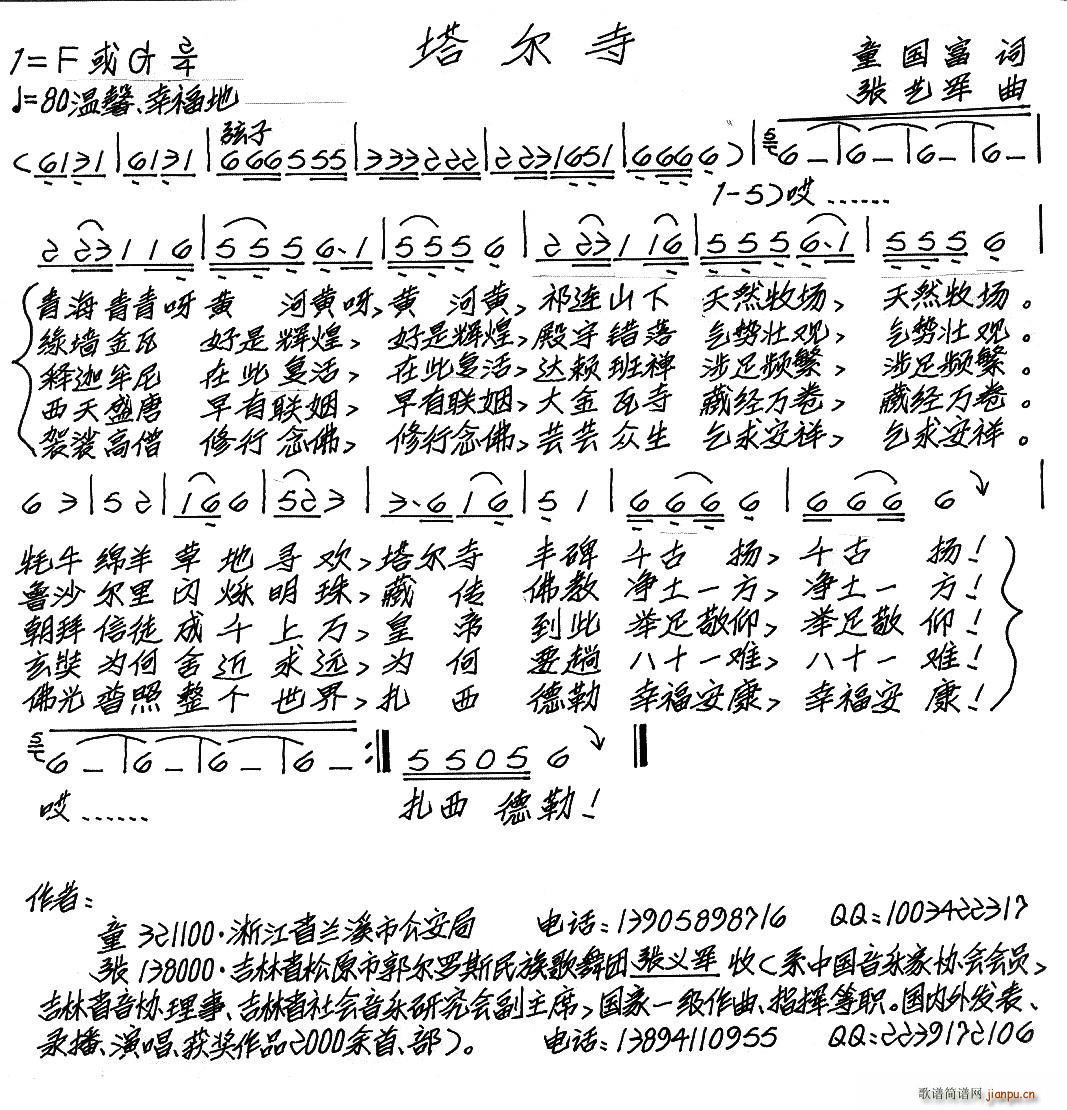 塔尔寺
1=F或G 2/4
童国富 词
♩=80温馨、幸福地
张艺军 曲
弦子
(6131|6131|666555|333222|2231651|6666)|56—|6—|6—|6—|
1-5)哎……
223116|5556·1|5556|223116|5556·1|5556|
青海青青呀黄 河黄呀,黄 河黄,祁连山下 天然牧场, 天然牧场。
绿墙金瓦 好是辉煌, 好是辉煌,殿宇错落 气势壮观, 气势壮观。
释迦牟尼 在此复活, 在此复活,达赖班禅 涉足频繁, 涉足频繁。
西天盛唐 早有联姻, 早有联姻,大金瓦寺 藏经万卷, 藏经万卷。
袈裟高僧 修行念佛, 修行念佛,芸芸众生 乞求安祥, 乞求安祥。
63|52|166|523|3·616|51|6666|6666|
牦牛绵羊草地寻欢,塔尔寺 丰碑千古 扬,千古 扬!
鲁沙尔里闪烁明珠,藏 传 佛教 净土一方,净土一 方!
朝拜信徒成千上万,皇 帝 到此 举足敬仰,举足敬 仰!
玄奘为何舍近求远,为 何 要趟 八十一难,八十一 难!
佛光普照整个世界,扎 西 德勒 幸福安康,幸福安 康!
56—|6—|6—|6—:‖55056‖
哎…… 扎西 德勒!
作者:
童 321100·浙江省兰溪市公安局 电话:13905898716 QQ:1003422317
张 138000·吉林省松原市郭尔罗斯民族歌舞团张义军 收(系中国音乐家协会会员,
吉林省音协理事、吉林省社会音乐研究会副主席,国家一级作曲、指挥等职。国内外发表、
录播、演唱、获奖作品2000余首、部)。 电话:13894110955 QQ:2239172106
歌谱简谱网 jianpu.cn